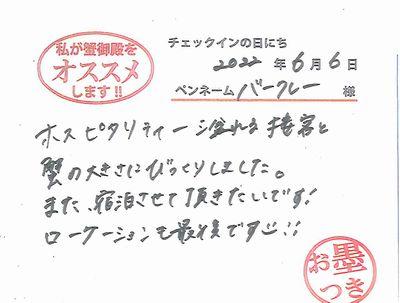 私が蟹御殿を
オススメ
します!!
チェックインの日にち
2022 年 6 月 6 日
ペンネーム バークレー 様
ホスピタリティー溢れる接客と
蟹の大きさにびっくりしました。
また、宿泊させて頂きたいです!
ローケーションも最高です!!
お墨
つき